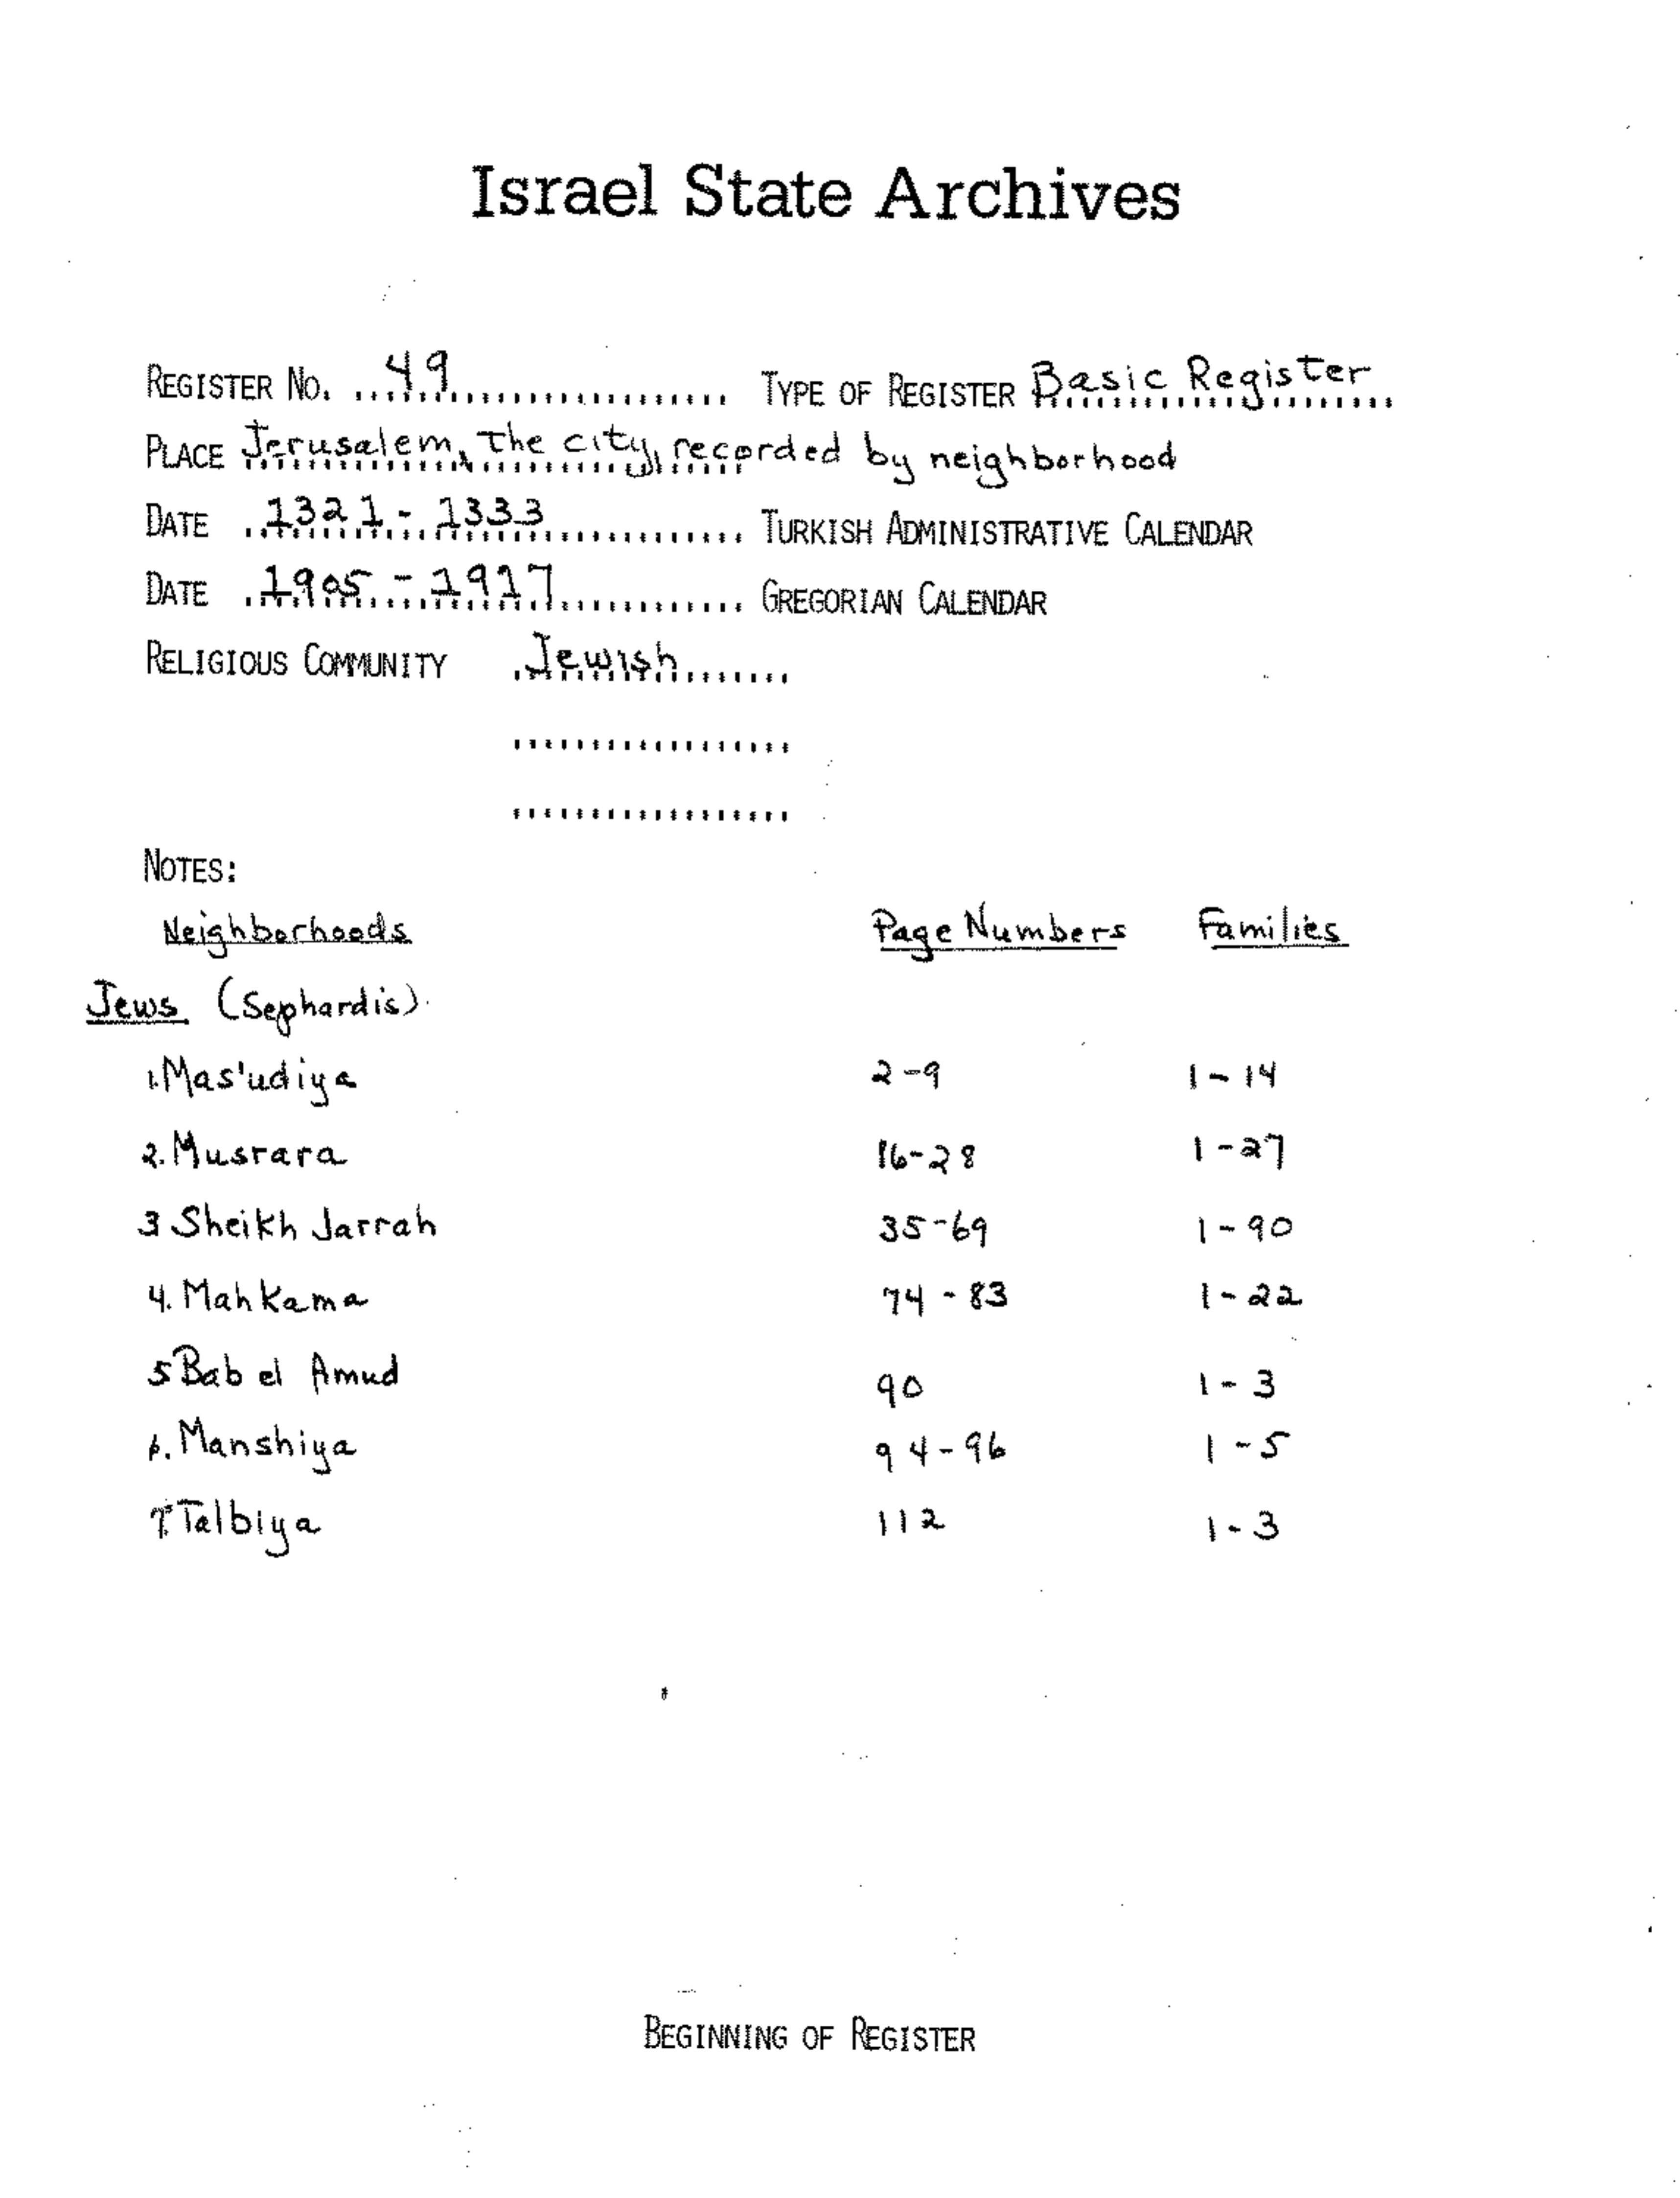 Israel State Archives
REGISTER NO. 49 TYPE OF REGISTER Basic Register
PLACE Jerusalem, the city, recorded by neighborhood
DATE 1321 - 1333 TURKISH ADMINISTRATIVE CALENDAR
DATE 1905 - 1917 GREGORIAN CALENDAR
RELIGIOUS COMMUNITY Jewish
NOTES:
Neighborhoods Page Numbers Families
Jews (Sephardis)
1. Mas'udiya 2-9 1-14
2. Musrara 16-28 1-27
3 Sheikh Jarrah 35-69 1-90
4. Mahkama 74-83 1-22
5 Bab el Amud 90 1-3
6. Manshiya 94-96 1-5
7. Talbiya 112 1-3
BEGINNING OF REGISTER